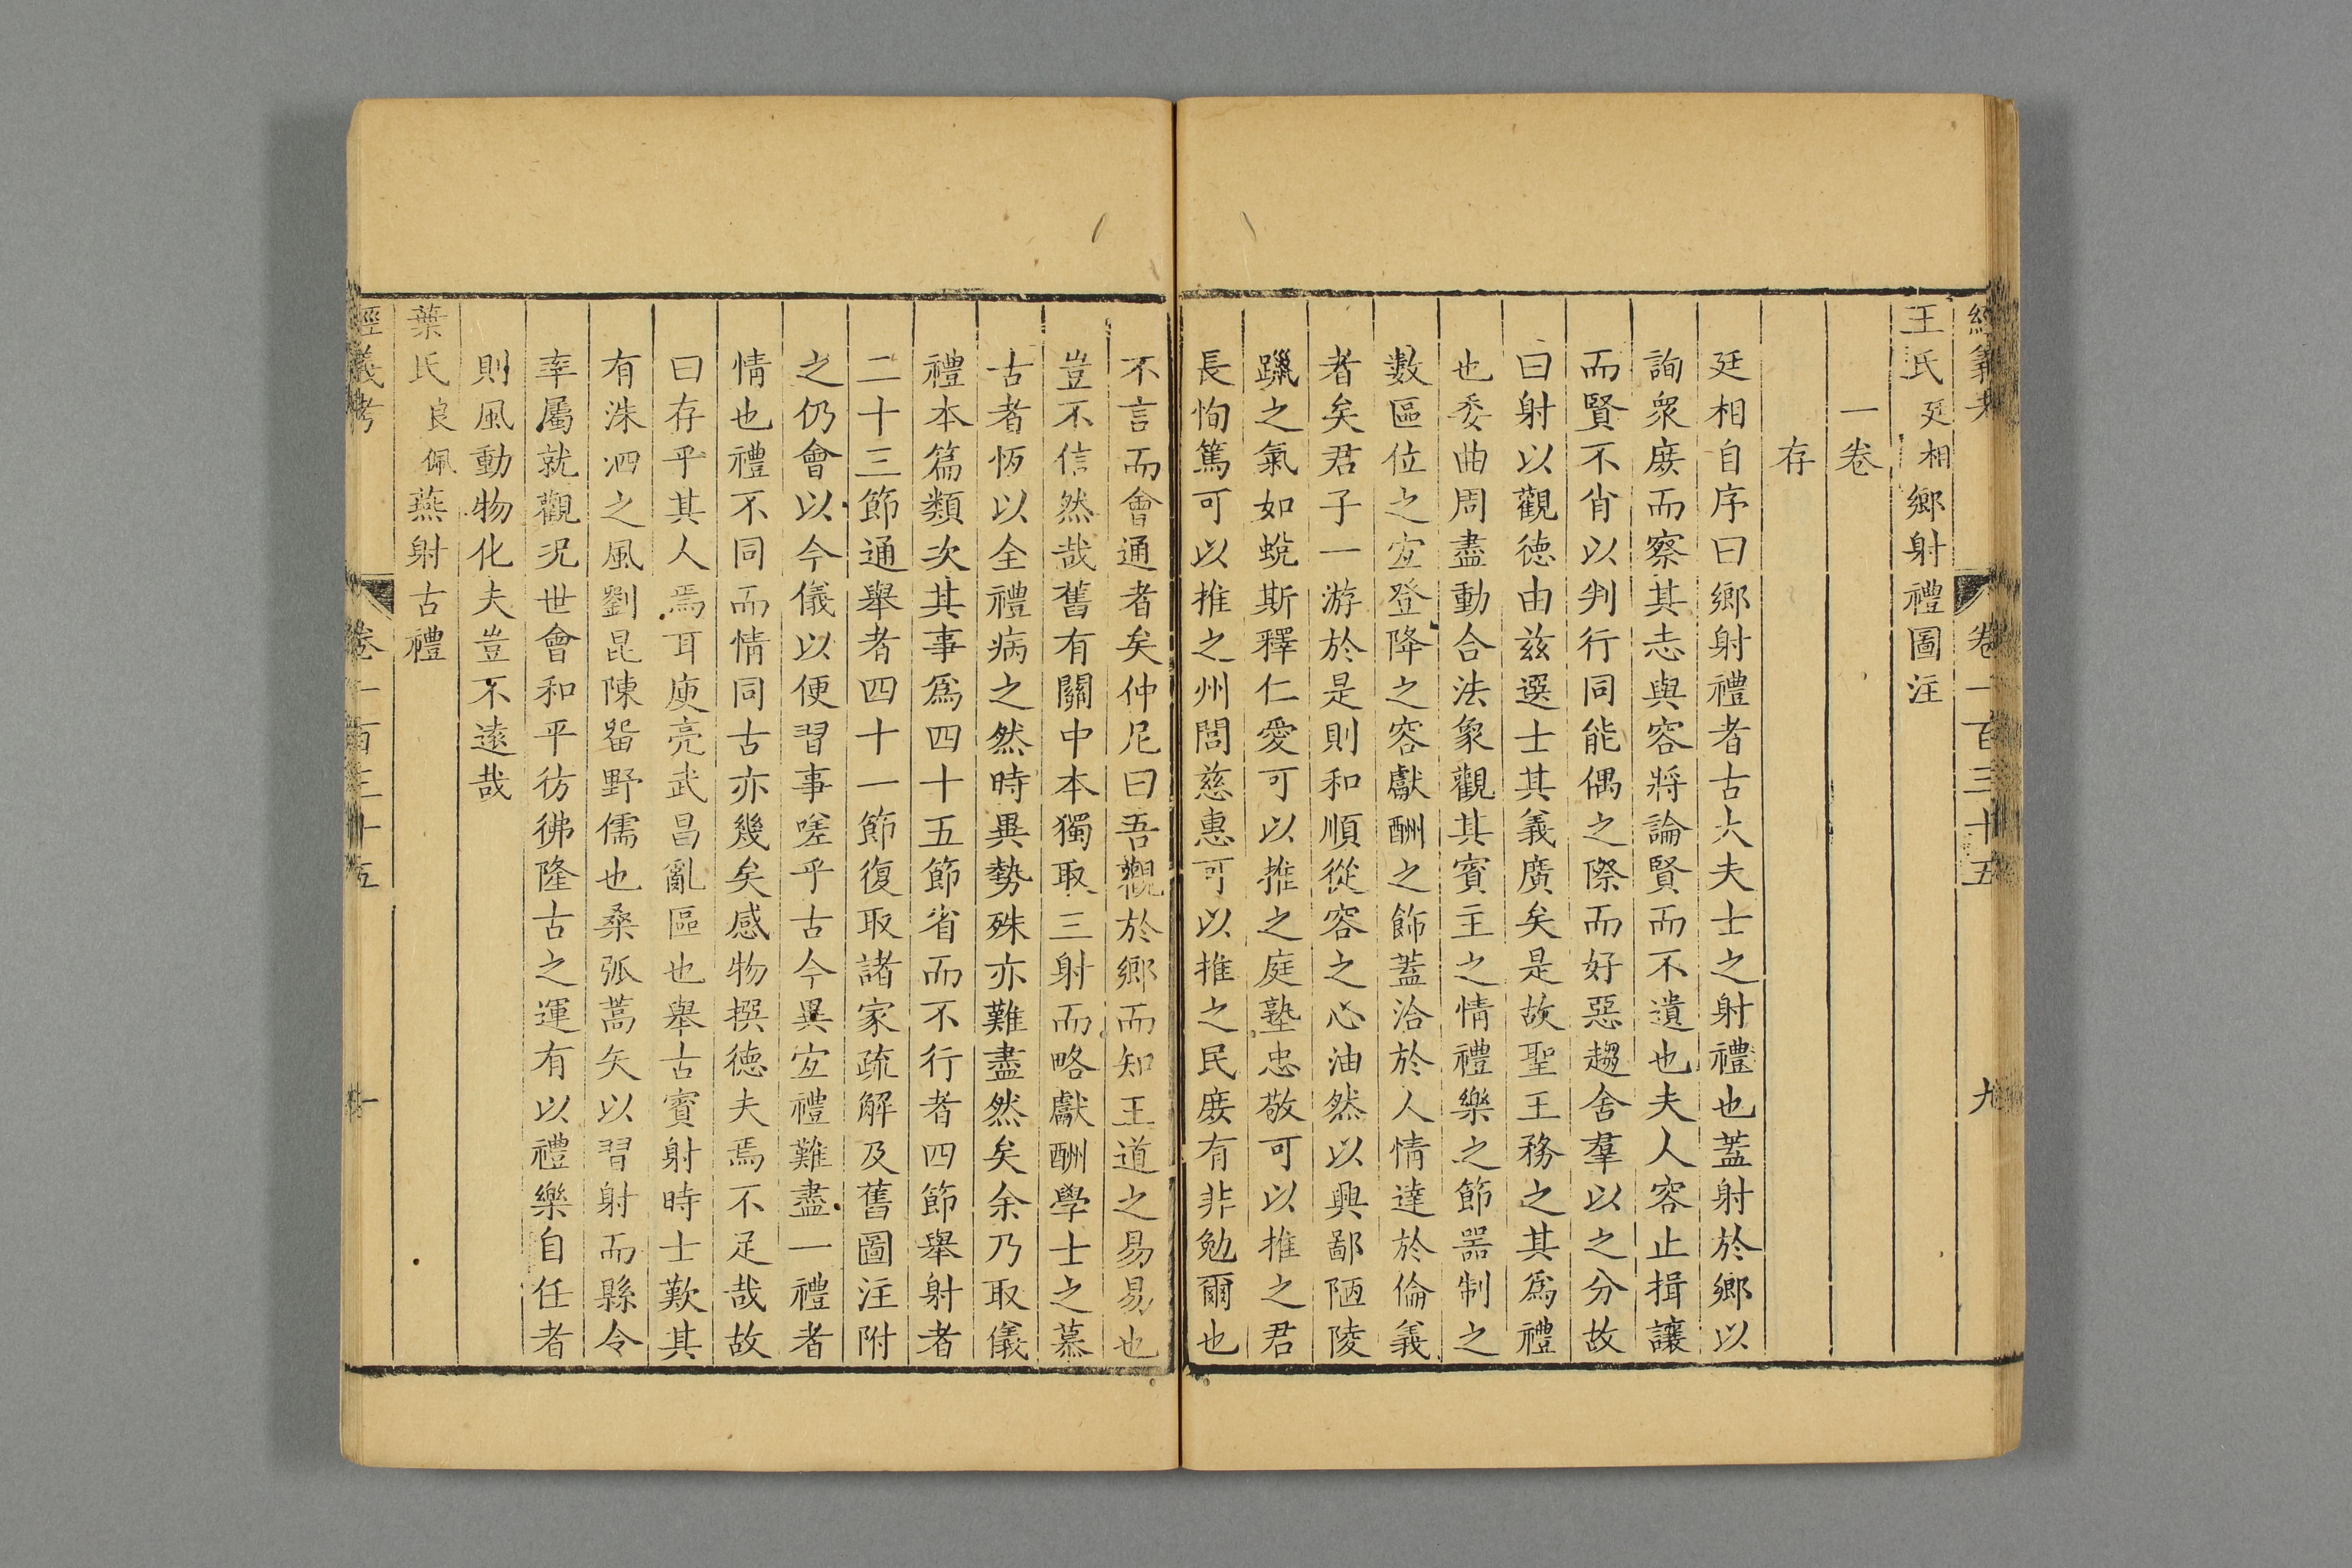 經義考 卷一百三十五 九
王氏廷相鄉射禮圖注
一卷
存
廷相自序曰鄉射禮者古大夫士之射禮也蓋射於鄉以
詢衆庶而察其志與容將論賢而不遺也夫人容止揖讓
而賢不肖以判行同能偶之際而好惡趨舍羣以之分故
曰射以觀德由茲選士其義廣矣是故聖王務之其爲禮
也委曲周盡動合法象觀其賓主之情禮樂之節噐制之
數區位之宐登降之容獻酬之飾蓋洽於人情達於倫義
者矣君子一游於是則和順從容之心油然以興鄙陋陵
躐之氣如蛻斯釋仁愛可以推之庭塾忠敬可以推之君
長恂篤可以推之州閭慈惠可以推之民庻有非勉爾也
不言而會通者矣仲尼曰吾觀於鄉而知王道之易易也
豈不信然哉舊有關中本獨取三射而略獻酬學士之慕
古者恆以全禮病之然時異勢殊亦難盡然矣余乃取儀
禮本篇類次其事爲四十五節省而不行者四節舉射者
二十三節通舉者四十一節復取諸家疏解及舊圖注附
之仍會以今儀以便習事嗟乎古今異宐禮難盡一禮者
情也禮不同而情同古亦幾矣感物撰德夫焉不足哉故
曰存乎其人焉耳庾亮武昌亂區也舉古賓射時士歎其
有洙泗之風劉昆陳畱野儒也桑弧蒿矢以習射而縣令
率屬就觀況世會和平彷彿隆古之運有以禮樂自任者
則風動物化夫豈不遠哉
葉氏良佩燕射古禮
經義考 卷一百三十五 十